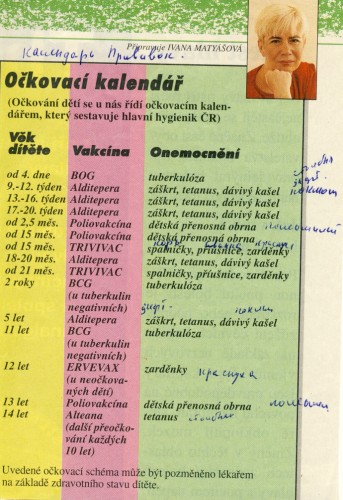 Календарь Прививок.
Připravuje IVANA MATYÁŠOVÁ
Očkovací kalendář
(Očkování dětí se u nás řídí očkovacím kalen-
dářem, který sestavuje hlavní hygienik ČR)
Věk dítěte Vakcína Onemocnění
od 4. dne BOG tuberkulóza
9.-12. týden Alditepera záškrt, tetanus, dávivý kašel
13.-16. týden Alditepera záškrt, tetanus, dávivý kašel
17.-20. týden Alditepera záškrt, tetanus, dávivý kašel
od 2,5 měs. Poliovakcína dětská přenosná obrna
od 15 měs. Poliovakcína dětská přenosná obrna
корь
od 15 měs. TRIVIVAC spalničky, příušnice, zarděnky
18-20 měs. Alditepera záškrt, tetanus, dávivý kašel
od 21 měs. TRIVIVAC spalničky, příušnice, zarděnky
2 roky BCG tuberkulóza
(u tuberkulin
negativních)
5 let Alditepera záškrt, tetanus, dávivý kašel
11 let BCG tuberkulóza
(u tuberkulin
negativních)
12 let ERVEVAX zarděnky краснуха
(u neočkova-
ných dětí)
13 let Poliovakcína dětská přenosná obrna
14 let Alteana tetanus столбняк
(další přeočko-
vání každých
10 let)
Uvedené očkovací schéma může být pozměněno lékařem
na základě zdravotního stavu dítěte.